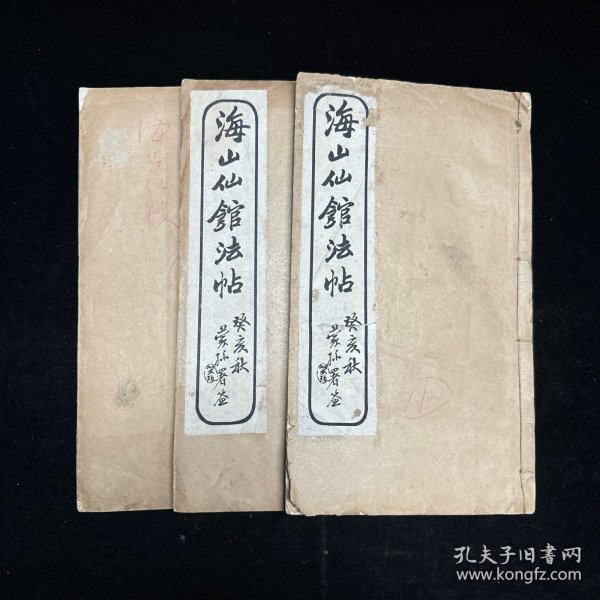 海山仙館法帖
癸亥秋
署簽
海山仙館法帖
癸亥秋
署簽
①
孔夫子旧书网
www.kongfz.com